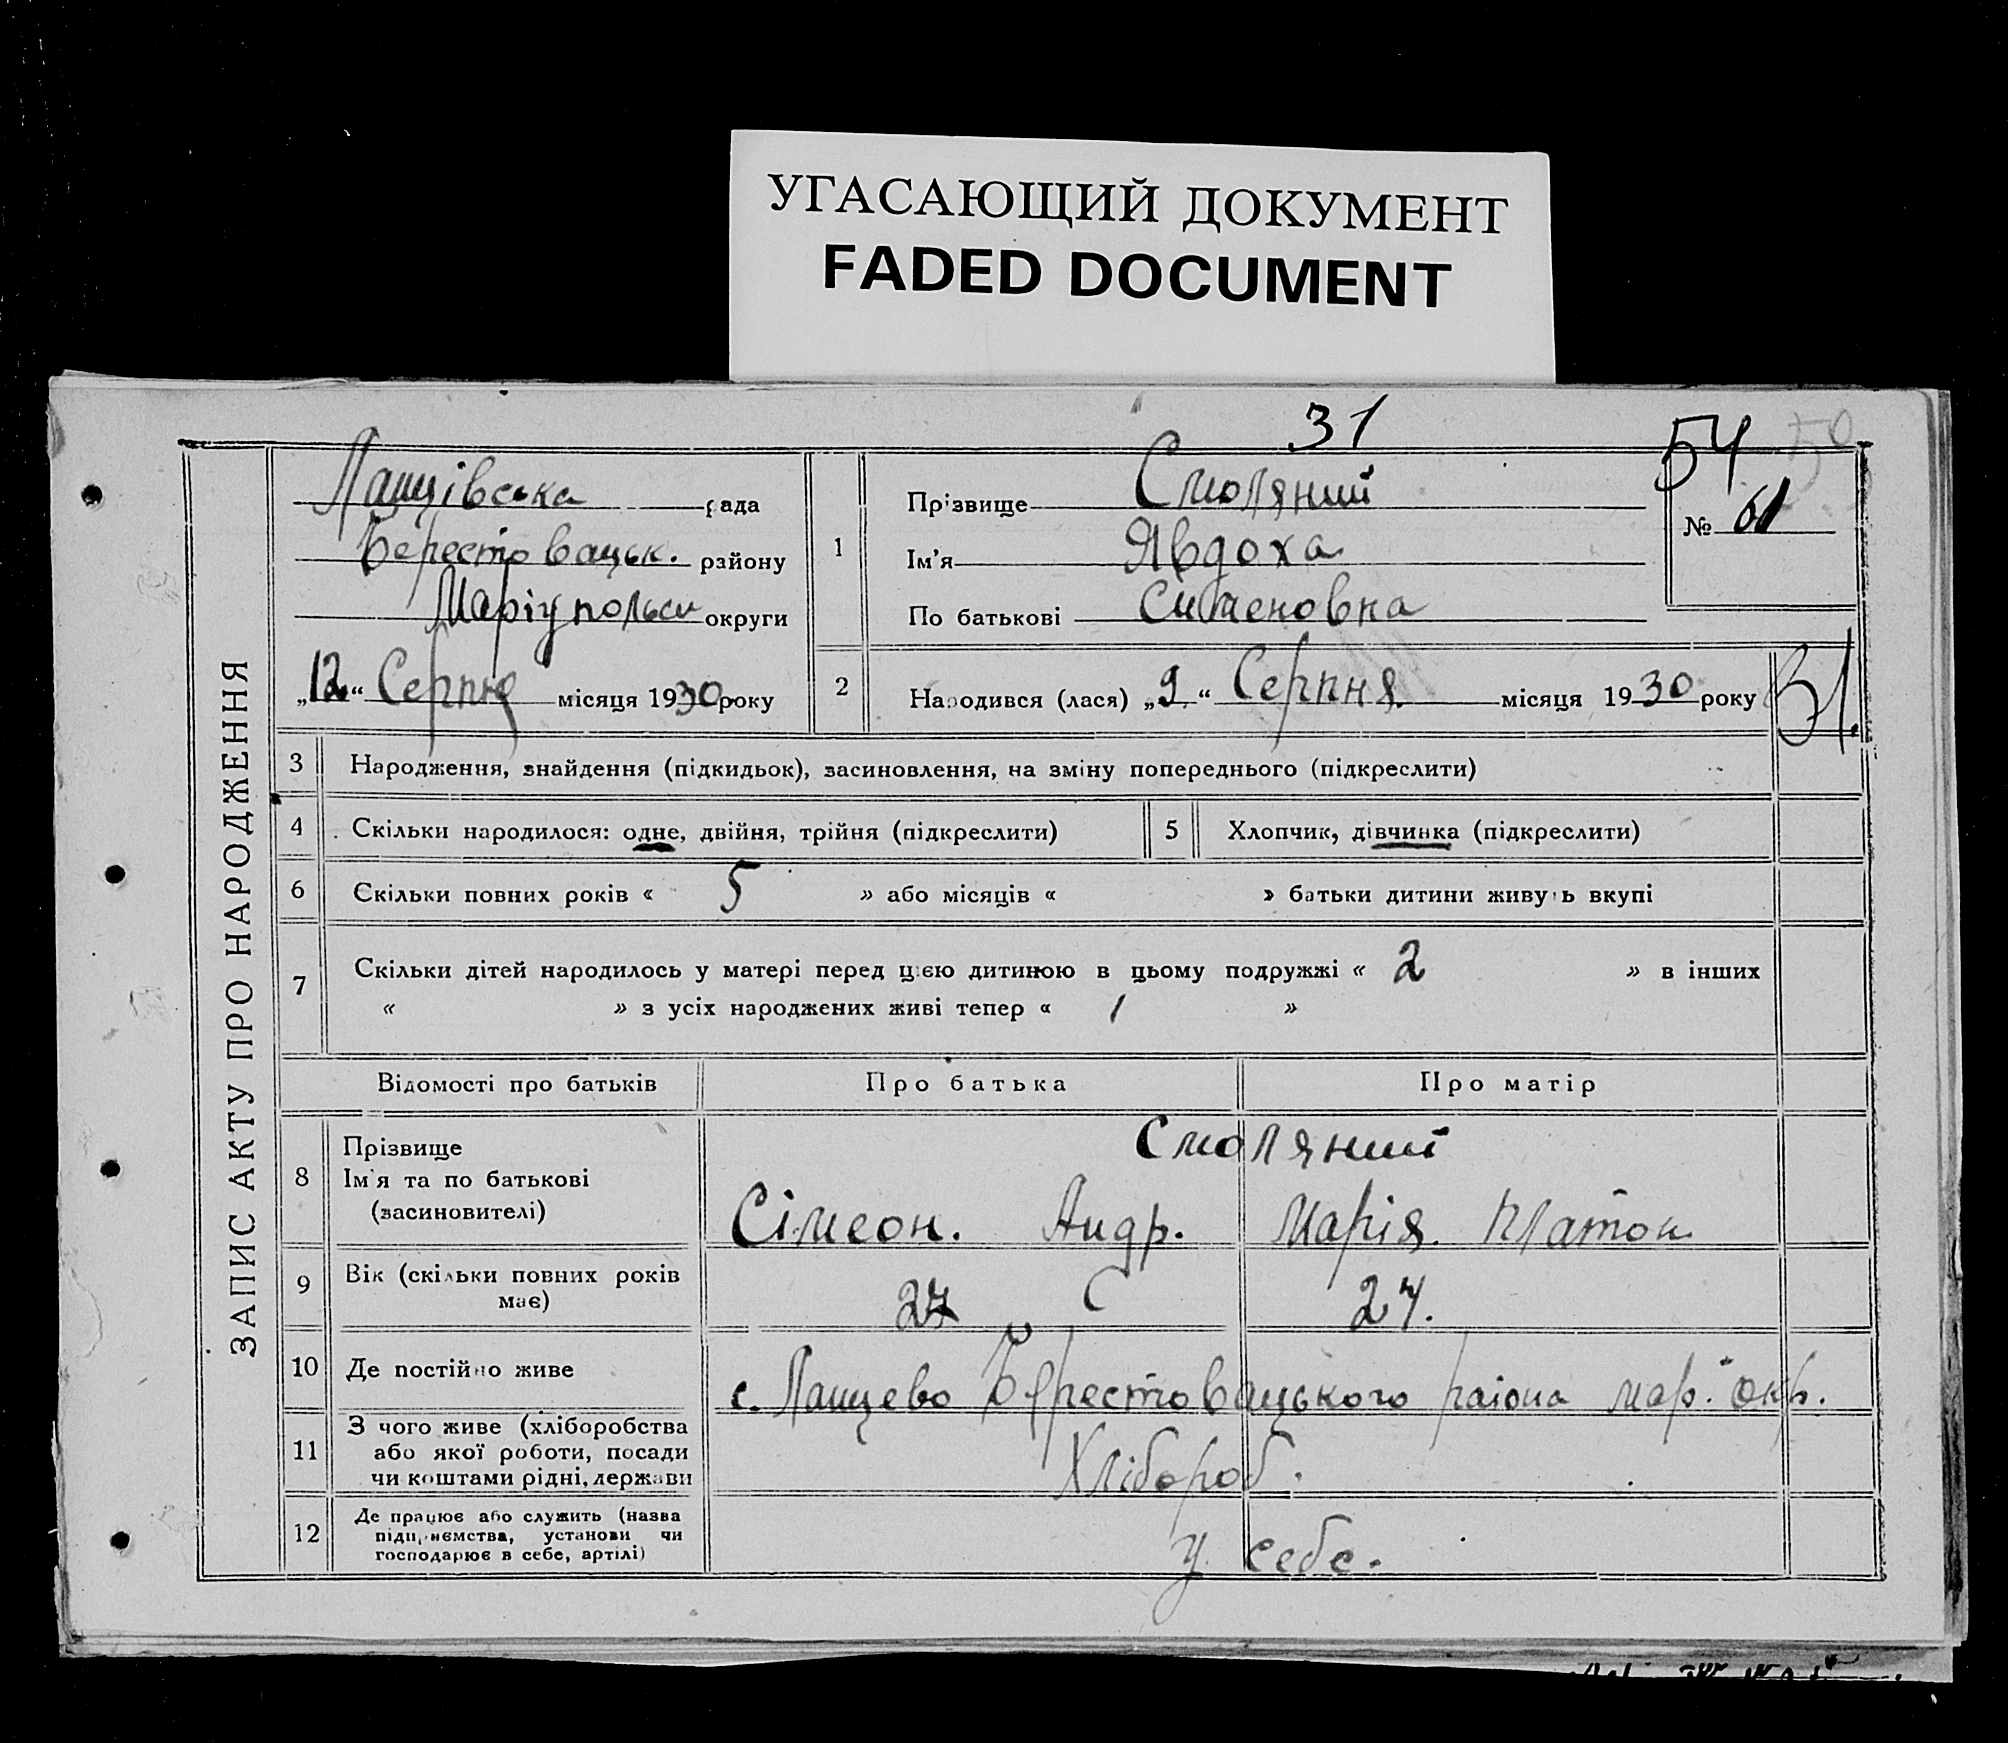 УГАСАЮЩИЙ ДОКУМЕНТ
FADED DOCUMENT
31
54 50
ЗАПИС АКТУ ПРО НАРОДЖЕННЯ
Ланцівська рада
Берестовацьк. району
Маріупольськ округи
„12“ Серпня місяця 1930 року
1
Прізвище Смоляний
Ім'я Явдоха
По батькові Сименовна
№ 61
2 Народився (лася) „9.“ Серпня місяця 1930 року
31.
3 Народження, знайдення (підкидьок), засиновлення, на зміну попереднього (підкреслити)
4 Скільки народилося: одне, двійня, трійня (підкреслити) 5 Хлопчик, дівчинка (підкреслити)
6 Скільки повних років « 5 » або місяців « » батьки дитини живуть вкупі
7 Скільки дітей народилось у матері перед цією дитиною в цьому подружжі « 2 » в інших
« » з усіх народжених живі тепер « 1 »
Відомості про батьків Про батька Про матір
8 Прізвище
Ім'я та по батькові
(засиновителі)
Смоляний
Сімеон. Андр. Марія Платон.
9 Вік (скільки повних років
має)
27 24.
10 Де постійно живе с. Ланцево Берестовацького раіона мар. окр.
11 З чого живе (хліборобства
або якої роботи, посади
чи коштами рідні, держави
Хлібороб.
12 Де працює або служить (назва
підприємства, установи чи
господарює в себе, артілі)
у себе.